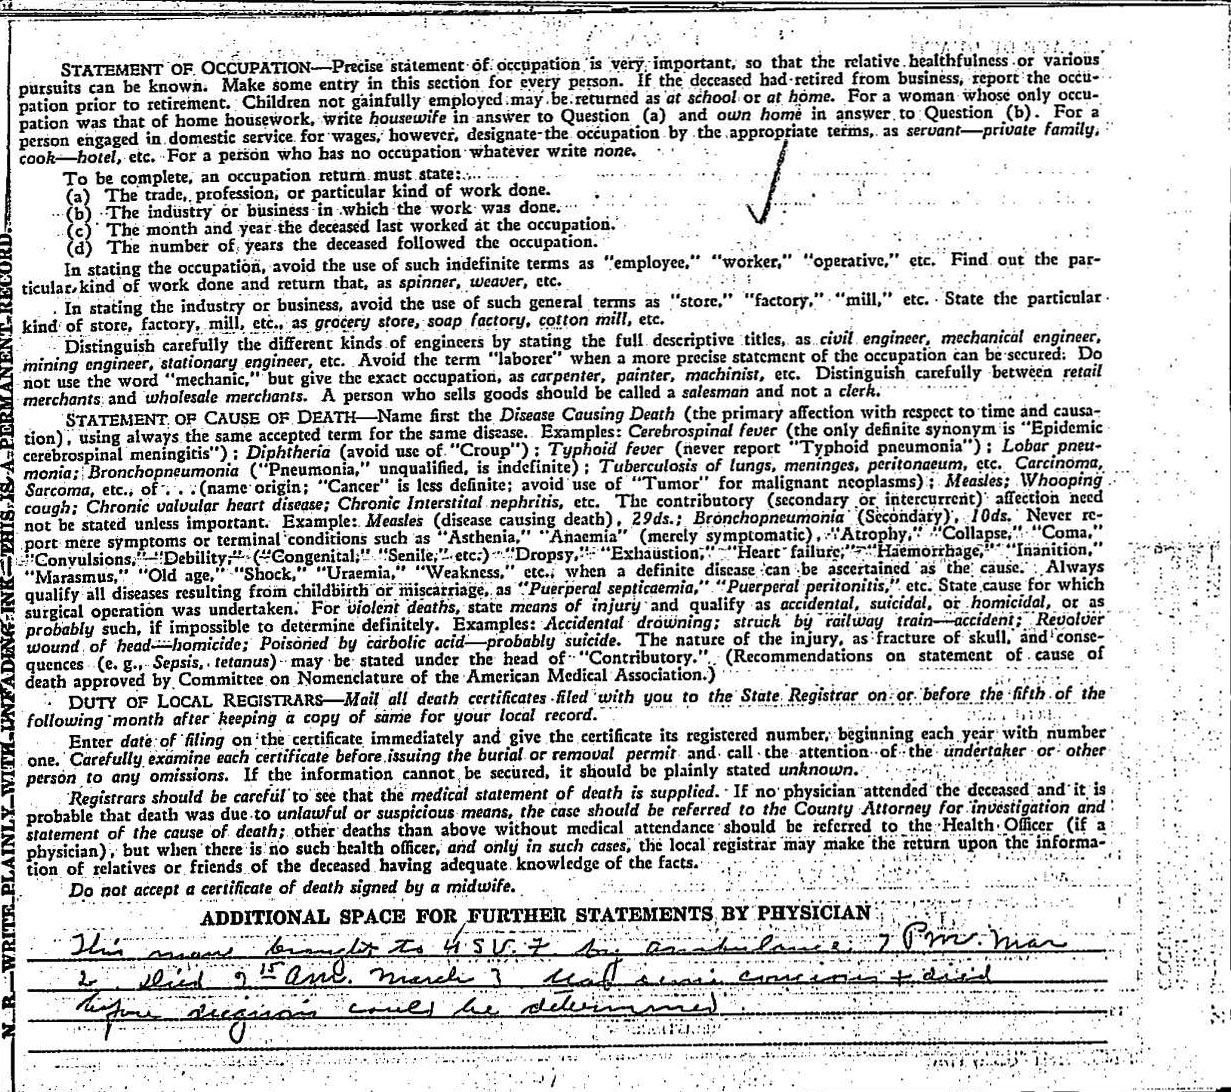 STATEMENT OF OCCUPATION—Precise statement of occupation is very important, so that the relative healthfulness or various
pursuits can be known. Make some entry in this section for every person. If the deceased had retired from business, report the occu-
pation prior to retirement. Children not gainfully employed may be returned as at school or at home. For a woman whose only occu-
pation was that of home housework, write housewife in answer to Question (a) and own home in answer to Question (b). For a
person engaged in domestic service for wages, however, designate the occupation by the appropriate terms, as servant—private family,
cook—hotel, etc. For a person who has no occupation whatever write none.
To be complete, an occupation return must state:
(a) The trade, profession, or particular kind of work done.
(b) The industry or business in which the work was done.
(c) The month and year the deceased last worked at the occupation.
(d) The number of years the deceased followed the occupation.
In stating the occupation, avoid the use of such indefinite terms as "employee," "worker," "operative," etc. Find out the par-
ticular kind of work done and return that, as spinner, weaver, etc.
In stating the industry or business, avoid the use of such general terms as "store," "factory," "mill," etc. State the particular
kind of store, factory, mill, etc., as grocery store, soap factory, cotton mill, etc.
Distinguish carefully the different kinds of engineers by stating the full descriptive titles, as civil engineer, mechanical engineer,
mining engineer, stationary engineer, etc. Avoid the term "laborer" when a more precise statement of the occupation can be secured. Do
not use the word "mechanic," but give the exact occupation, as carpenter, painter, machinist, etc. Distinguish carefully between retail
merchants and wholesale merchants. A person who sells goods should be called a salesman and not a clerk.
STATEMENT OF CAUSE OF DEATH—Name first the Disease Causing Death (the primary affection with respect to time and causa-
tion), using always the same accepted term for the same disease. Examples: Cerebrospinal fever (the only definite synonym is "Epidemic
cerebrospinal meningitis"); Diphtheria (avoid use of "Croup"); Typhoid fever (never report "Typhoid pneumonia"); Lobar pneu-
monia; Bronchopneumonia ("Pneumonia," unqualified, is indefinite); Tuberculosis of lungs, meninges, peritonaeum, etc. Carcinoma,
Sarcoma, etc., of . . . (name origin; "Cancer" is less definite; avoid use of "Tumor" for malignant neoplasms); Measles; Whooping
cough; Chronic valvular heart disease; Chronic Interstital nephritis, etc. The contributory (secondary or intercurrent) affection need
not be stated unless important. Example: Measles (disease causing death), 29ds.; Bronchopneumonia (Secondary), 10ds. Never re-
port mere symptoms or terminal conditions such as "Asthenia," "Anaemia" (merely symptomatic), "Atrophy," "Collapse," "Coma,"
"Convulsions," "Debility," ("Congenital," "Senile," etc.) "Dropsy," "Exhaustion," "Heart failure," "Haemorrhage," "Inanition,"
"Marasmus," "Old age," "Shock," "Uraemia," "Weakness," etc., when a definite disease can be ascertained as the cause. Always
qualify all diseases resulting from childbirth or miscarriage, as "Puerperal septicaemia," "Puerperal peritonitis," etc. State cause for which
surgical operation was undertaken. For violent deaths, state means of injury and qualify as accidental, suicidal, or homicidal, or as
probably such, if impossible to determine definitely. Examples: Accidental drowning; struck by railway train—accident; Revolver
wound of head—homicide; Poisoned by carbolic acid—probably suicide. The nature of the injury, as fracture of skull, and conse-
quences (e. g., Sepsis, tetanus) may be stated under the head of "Contributory." (Recommendations on statement of cause of
death approved by Committee on Nomenclature of the American Medical Association.)
DUTY OF LOCAL REGISTRARS—Mail all death certificates filed with you to the State Registrar on or before the fifth of the
following month after keeping a copy of same for your local record.
Enter date of filing on the certificate immediately and give the certificate its registered number, beginning each year with number
one. Carefully examine each certificate before issuing the burial or removal permit and call the attention of the undertaker or other
person to any omissions. If the information cannot be secured, it should be plainly stated unknown.
Registrars should be careful to see that the medical statement of death is supplied. If no physician attended the deceased and it is
probable that death was due to unlawful or suspicious means, the case should be referred to the County Attorney for investigation and
statement of the cause of death; other deaths than above without medical attendance should be referred to the Health Officer (if a
physician), but when there is no such health officer, and only in such cases, the local registrar may make the return upon the informa-
tion of relatives or friends of the deceased having adequate knowledge of the facts.
Do not accept a certificate of death signed by a midwife.
ADDITIONAL SPACE FOR FURTHER STATEMENTS BY PHYSICIAN
This man brought to by ambulance 7 P.m. Mar
2. Died 9 15 Am. March 3 semi concious + died
before diagnosis could be determined
N. B.—WRITE PLAINLY WITH UNFADING INK—THIS IS A PERMANENT RECORD.